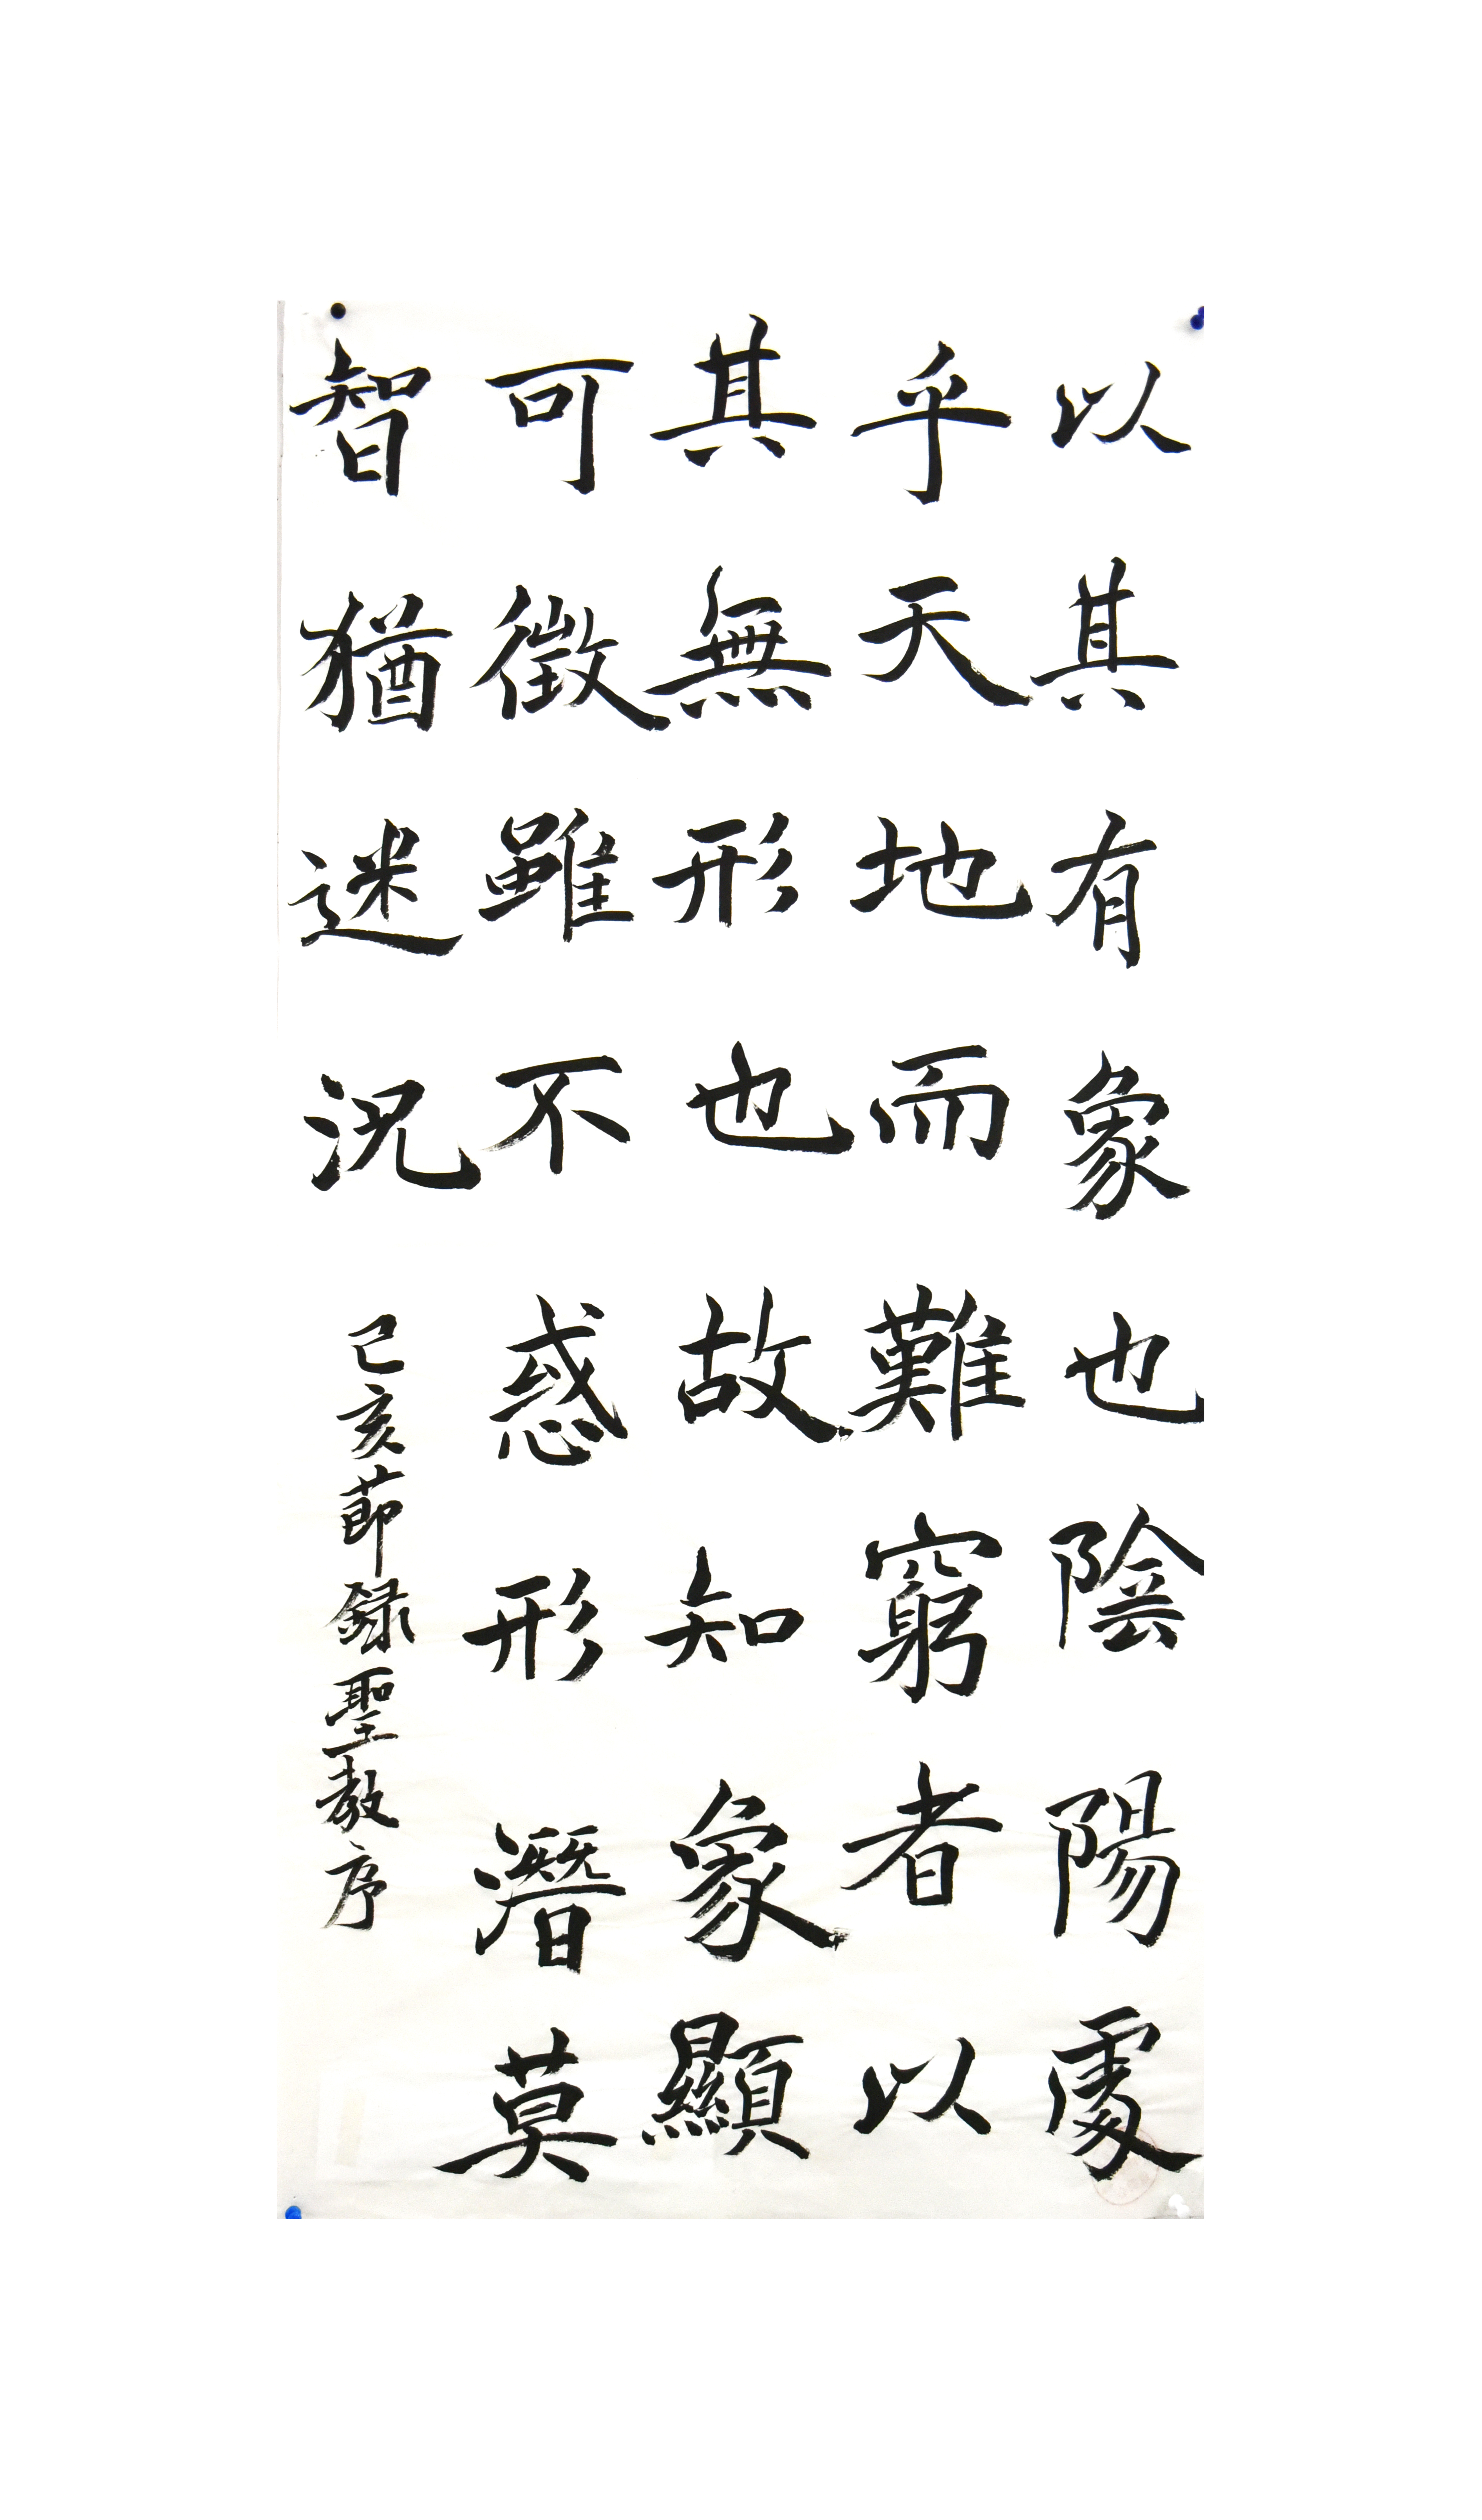 以其有象也陰陽處
乎天地而難窮者以
其無形也故知象顯
可徵雖不惑形潛莫
智猶迷況
己亥節録聖教序